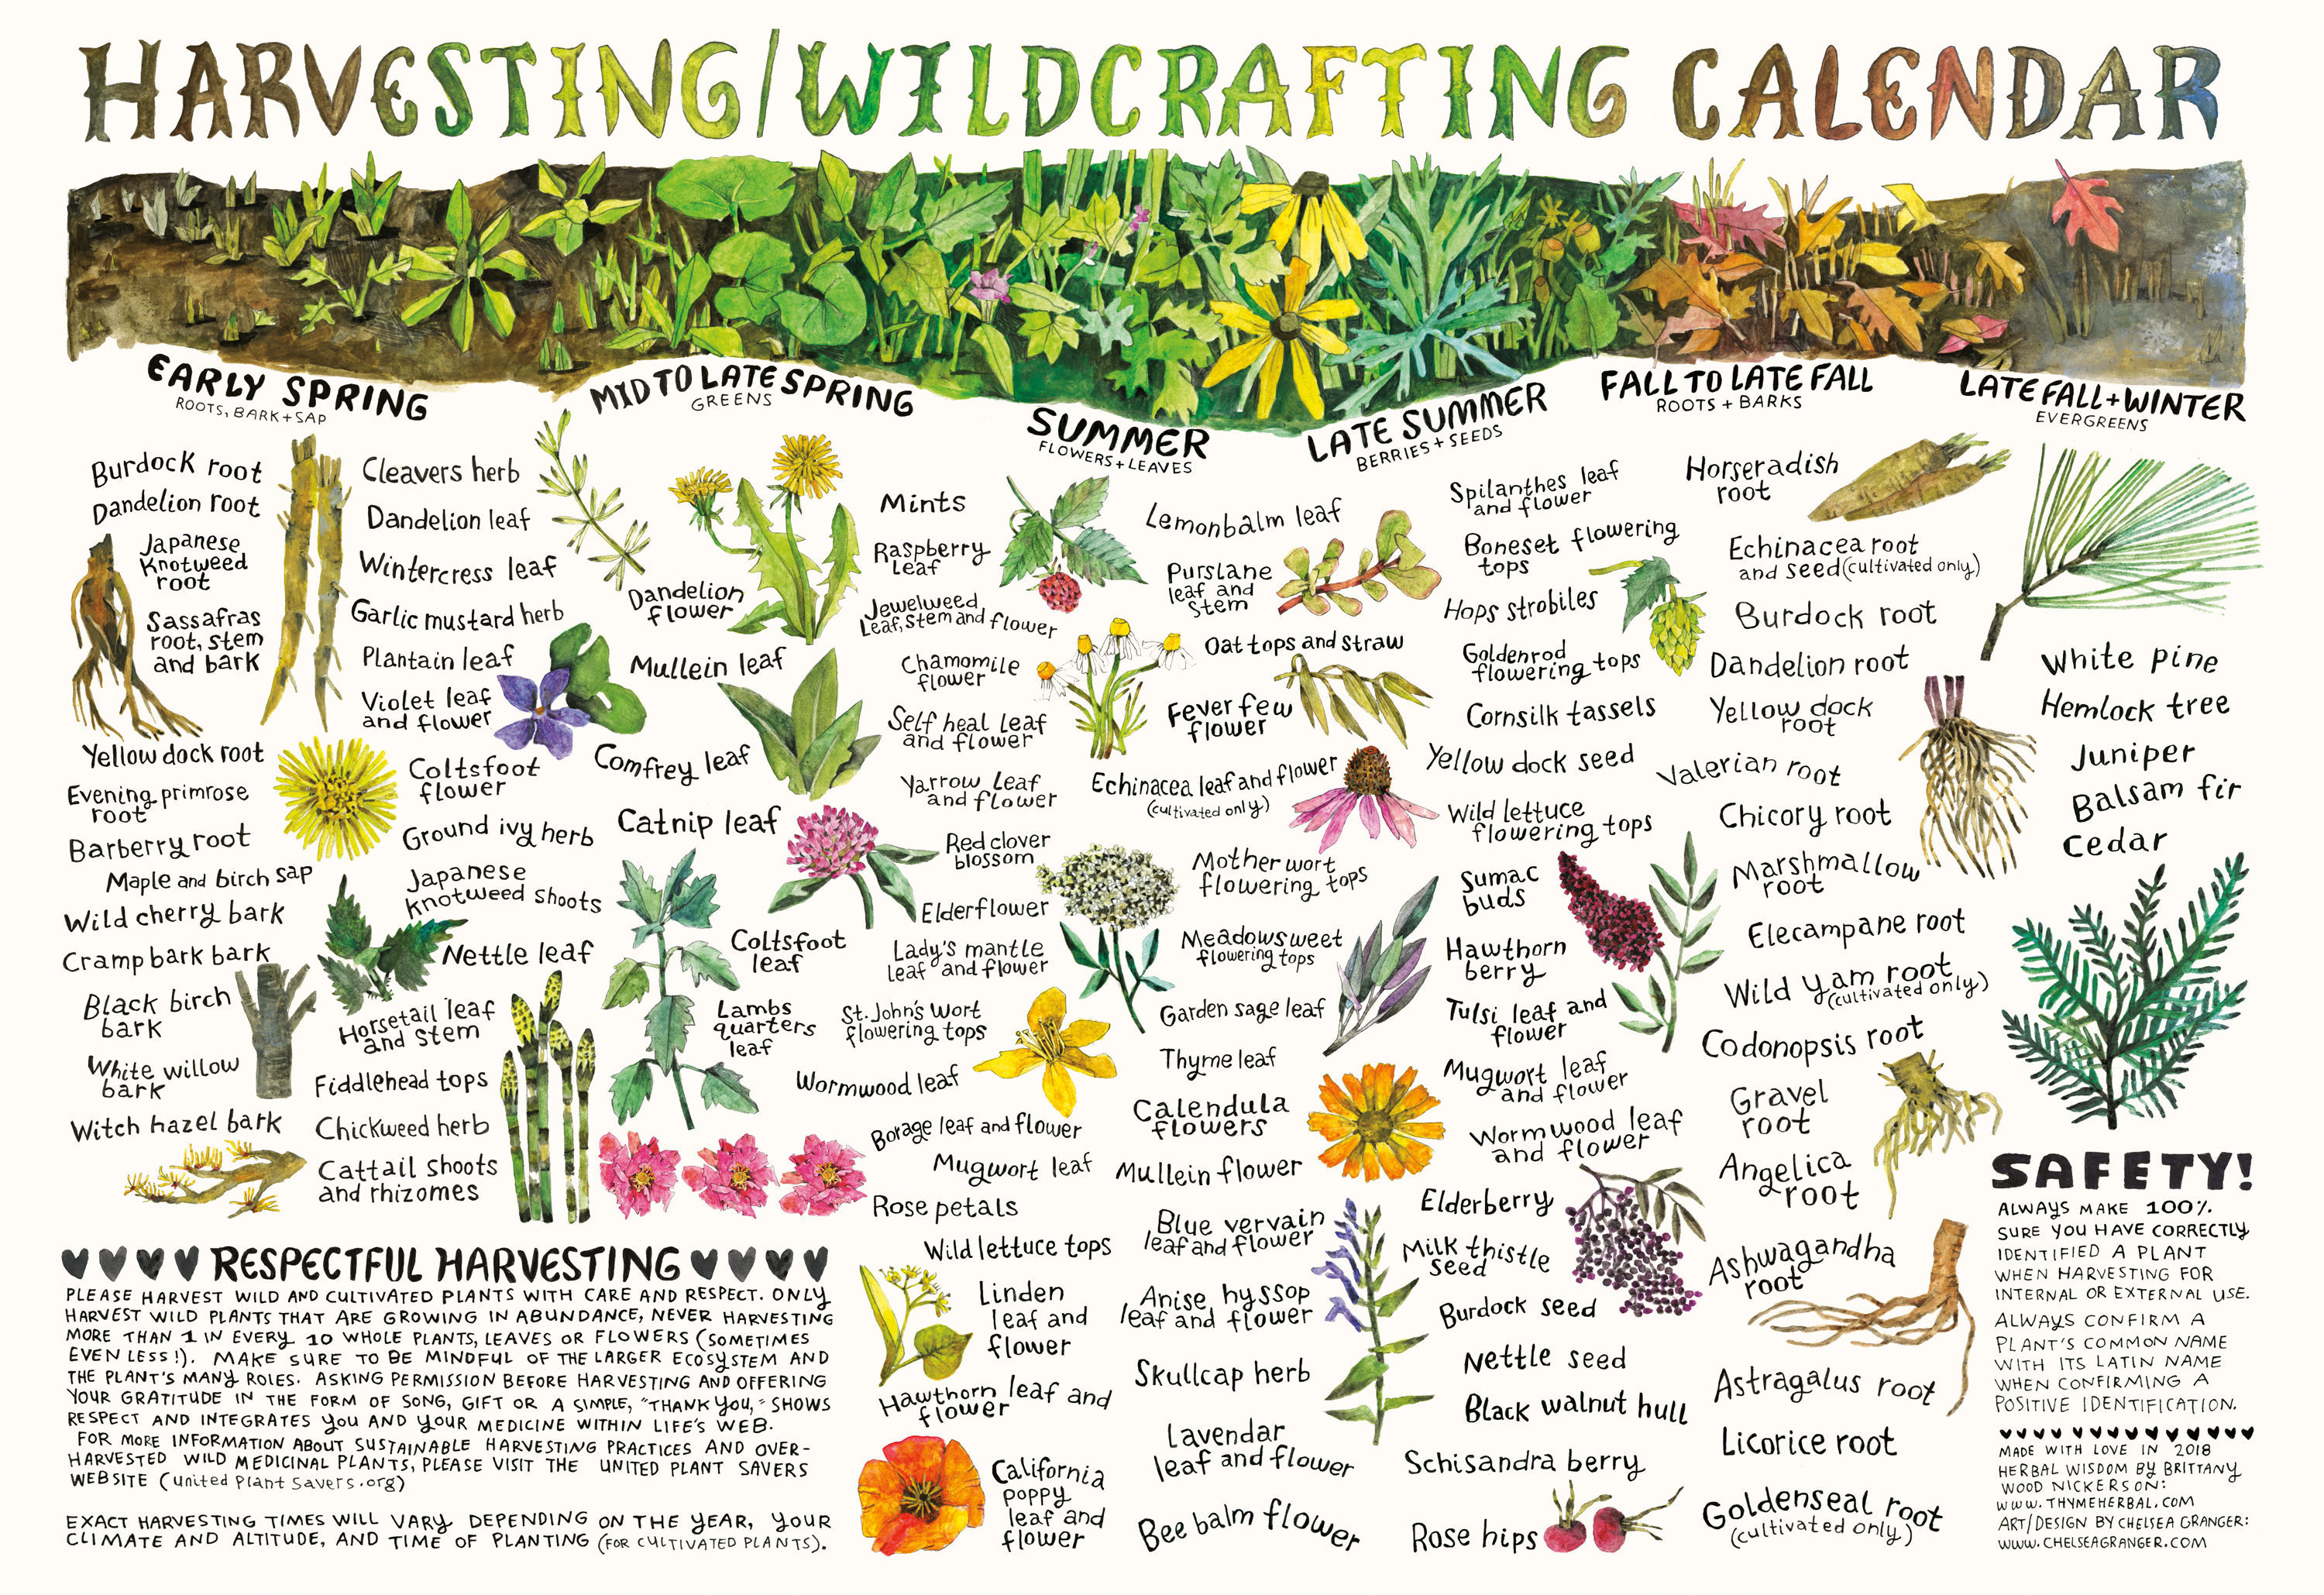 HARVESTING/WILDCRAFTING CALENDAR
EARLY SPRING
ROOTS, BARK + SAP
Burdock root
Dandelion root
Japanese
Knotweed
root
Sassafras
root, stem
and bark
Yellow dock root
Evening primrose
root
Barberry root
Maple and birch sap
Wild cherry bark
Cramp bark bark
Black birch
bark
White willow
bark
Witch hazel bark
MID TO LATE SPRING
GREENS
Cleavers herb
Dandelion leaf
Wintercress leaf
Garlic mustard herb
Plantain leaf
Violet leaf
and flower
Coltsfoot
flower
Ground ivy herb
Japanese
knotweed shoots
Nettle leaf
Horsetail leaf
and stem
Fiddlehead tops
Chickweed herb
Cattail shoots
and rhizomes
Dandelion
flower
Mullein leaf
Comfrey leaf
Catnip leaf
Coltsfoot
leaf
Lambs
quarters
leaf
SUMMER
FLOWERS + LEAVES
Mints
Raspberry
Leaf
Jewelweed
Leaf, stem and flower
Chamomile
flower
Self heal leaf
and flower
Yarrow leaf
and flower
Red clover
blossom
Elderflower
Lady's mantle
leaf and flower
St. John's wort
flowering tops
Wormwood leaf
Borage leaf and flower
Mugwort leaf
Rose petals
Wild lettuce tops
Linden
leaf and
flower
Hawthorn leaf and
flower
California
poppy
leaf and
flower
Lemonbalm leaf
Purslane
leaf and
stem
Oat tops and straw
Fever few
flower
Echinacea leaf and flower
(cultivated only)
Mother wort
flowering tops
Meadowsweet
flowering tops
Garden sage leaf
Thyme leaf
Calendula
flowers
Mullein flower
Blue vervain
leaf and flower
Anise hyssop
leaf and flower
Skullcap herb
Lavendar
leaf and flower
Bee balm flower
LATE SUMMER
BERRIES + SEEDS
Spilanthes leaf
and flower
Boneset flowering
tops
Hops strobiles
Goldenrod
flowering tops
Cornsilk tassels
Yellow dock seed
Wild lettuce
flowering tops
Sumac
buds
Hawthorn
berry
Tulsi leaf and
flower
Mugwort leaf
and flower
Wormwood leaf
and flower
Elderberry
Milk thistle
seed
Burdock seed
Nettle seed
Black walnut hull
Schisandra berry
Rose hips
FALL TO LATE FALL
ROOTS + BARKS
Horseradish
root
Echinacea root
and seed (cultivated only)
Burdock root
Dandelion root
Yellow dock
root
Valerian root
Chicory root
Marshmallow
root
Elecampane root
Wild yam root
(cultivated only)
Codonopsis root
Gravel
root
Angelica
root
Ashwagandha
root
Astragalus root
Licorice root
Goldenseal root
(cultivated only)
LATE FALL + WINTER
EVERGREENS
White pine
Hemlock tree
Juniper
Balsam fir
Cedar
RESPECTFUL HARVESTING
PLEASE HARVEST WILD AND CULTIVATED PLANTS WITH CARE AND RESPECT. ONLY
HARVEST WILD PLANTS THAT ARE GROWING IN ABUNDANCE, NEVER HARVESTING
MORE THAN 1 IN EVERY 10 WHOLE PLANTS, LEAVES OR FLOWERS (SOMETIMES
EVEN LESS!). MAKE SURE TO BE MINDFUL OF THE LARGER ECOSYSTEM AND
THE PLANT'S MANY ROLES. ASKING PERMISSION BEFORE HARVESTING AND OFFERING
YOUR GRATITUDE IN THE FORM OF SONG, GIFT OR A SIMPLE, "THANK YOU," SHOWS
RESPECT AND INTEGRATES YOU AND YOUR MEDICINE WITHIN LIFE'S WEB.
FOR MORE INFORMATION ABOUT SUSTAINABLE HARVESTING PRACTICES AND OVER-
HARVESTED WILD MEDICINAL PLANTS, PLEASE VISIT THE UNITED PLANT SAVERS
WEBSITE (united Plant Savers.org)
EXACT HARVESTING TIMES WILL VARY DEPENDING ON THE YEAR, YOUR
CLIMATE AND ALTITUDE, AND TIME OF PLANTING (FOR CULTIVATED PLANTS).
SAFETY!
ALWAYS MAKE 100%
SURE YOU HAVE CORRECTLY
IDENTIFIED A PLANT
WHEN HARVESTING FOR
INTERNAL OR EXTERNAL USE.
ALWAYS CONFIRM A
PLANT'S COMMON NAME
WITH ITS LATIN NAME
WHEN CONFIRMING A
POSITIVE IDENTIFICATION.
MADE WITH LOVE IN 2018
HERBAL WISDOM BY BRITTANY
WOOD NICKERSON:
WWW.THYMEHERBAL.COM
ART/DESIGN BY CHELSEA GRANGER:
WWW.CHELSEAGRANGER.COM